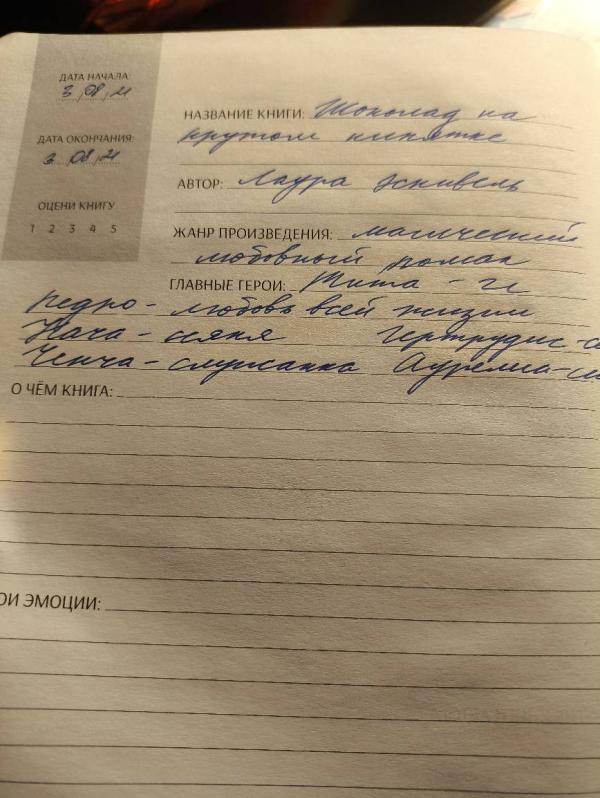 ДАТА НАЧАЛА:
3.08.21
НАЗВАНИЕ КНИГИ: Шоколад на
крутом кипятке
ДАТА ОКОНЧАНИЯ:
3.08.21
АВТОР: Лаура Эскивель
ОЦЕНИ КНИГУ
1 2 3 4 5
ЖАНР ПРОИЗВЕДЕНИЯ: магический
любовный роман
ГЛАВНЫЕ ГЕРОИ: Тита - гг
Педро - любовь всей жизни
Нача - няня Гертрудис -
Ченча - служанка Аурелиа -
О ЧЁМ КНИГА:
ОИ ЭМОЦИИ: